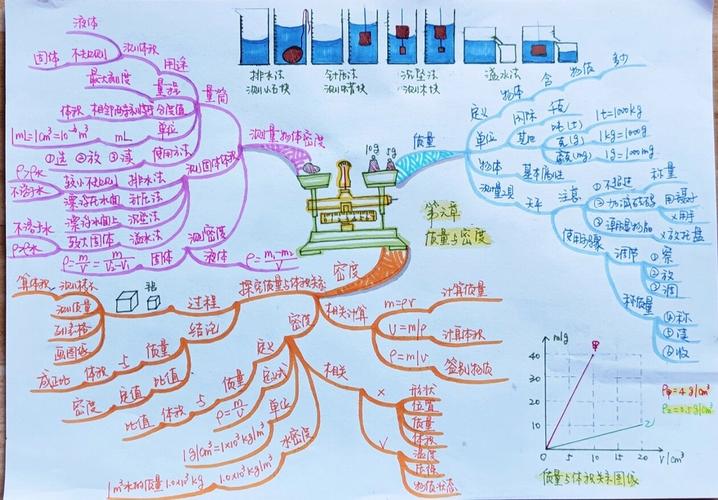 液体
固体 不规则 测体积 用途
最大刻度 量程
体积 相邻两刻线 分度值
1mL=1cm³=10⁻⁶m³ mL 单位
①选 ②放 ③读 使用方法
量筒
测固体体积
ρ>ρ水
不溶于水
较小不规则 排水法
漂浮在水面 针压法
漂浮水面上 沉坠法
较大固体 溢水法
不溶于水
ρ>ρ水
ρ=m/V=m/V₂-V₁ 固体 测密度
液体 ρ=m₁-m₂/V
测量物体密度
排水法
测小石块
针压法
测蜡块
沉坠法
测木块
溢水法
10g 5g
第六章
质量与密度
质量
定义 物体 含 物质 多少
单位 国际 千克
其他 吨(t) 1t=1000kg
克(g) 1kg=1000g
毫克(mg) 1g=1000mg
物体 基本属性
测量工具 天平 注意
①不超过 称量
②加减砝码 用镊子
×用手
③
×放托盘
使用步骤 调节 ①察
②放
③调
称质量 ④称
⑤读
⑥收
密度
探究质量与体积关系
过程
测质量
列表格
画图像
结论
成正比 体积 与 质量
密度 定值 比值
密度
定义
比值 体积 与 质量
定义式 ρ=m/V
单位
1g/cm³=1×10³kg/m³
水密度
1.0×10³kg/m³
1m³水的质量1.0×10³kg
相关计算
m=ρV 计算质量
V=m/ρ 计算体积
ρ=m/V 鉴别物质
相关
×
形状
位置
质量
体积
√
温度
物质种类
物质状态
m/g
40
30
20
10
0
5
10
15
20
V/cm³
甲
乙
ρ甲=4g/cm³
ρ乙=0.5g/cm³
质量与体积关系图像